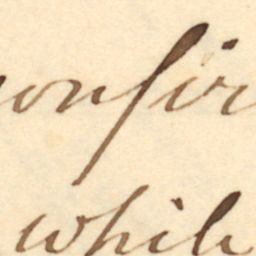 onfir
while